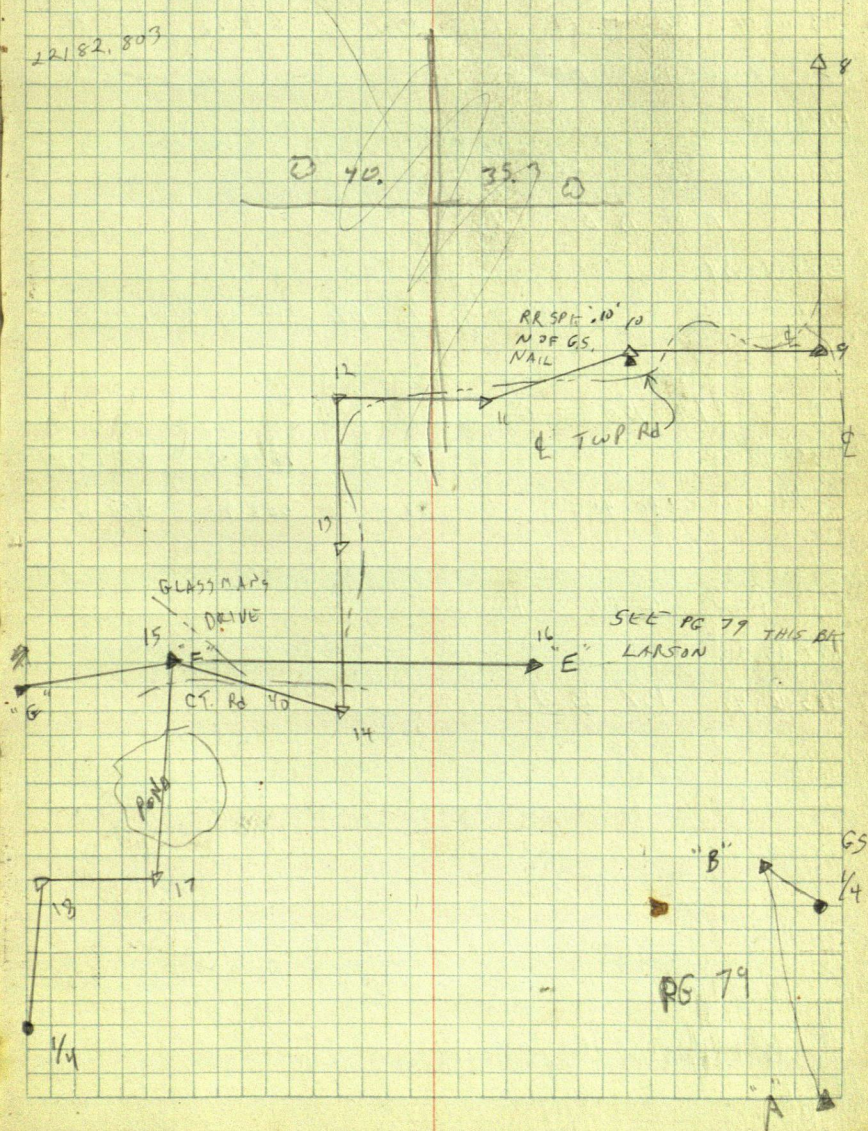 8
40. 35.3
RR SPK .10' 10
N OF G.S.
NAIL
9
12
11
℄ TWP Rd
℄
13
GLASSMANS
DRIVE
15 "F"
16 "E"
SEE PG 79 THIS BK
LARSON
"G"
CT. Rd 40
14
POND
"B"
GS
1/4
18
17
PG 79
1/4
"A"